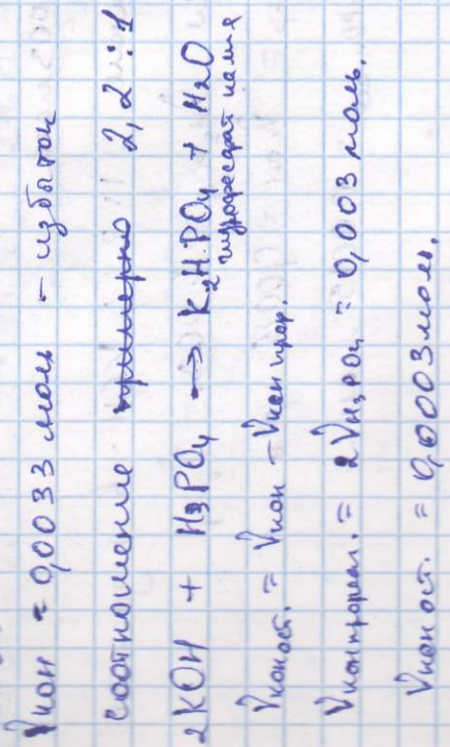 νKOH = 0,0033 моль – избыток
Соотношение примерно 2,2 : 1
2KOH + H₃PO₄ → K₂HPO₄ + H₂O
гидрофосфат калия
νKOH ост. = νKOH – νKOH прор.
νKOH прореаг. = 2νH₃PO₄ = 0,003 моль.
νKOH ост. = 0,0003 моль.